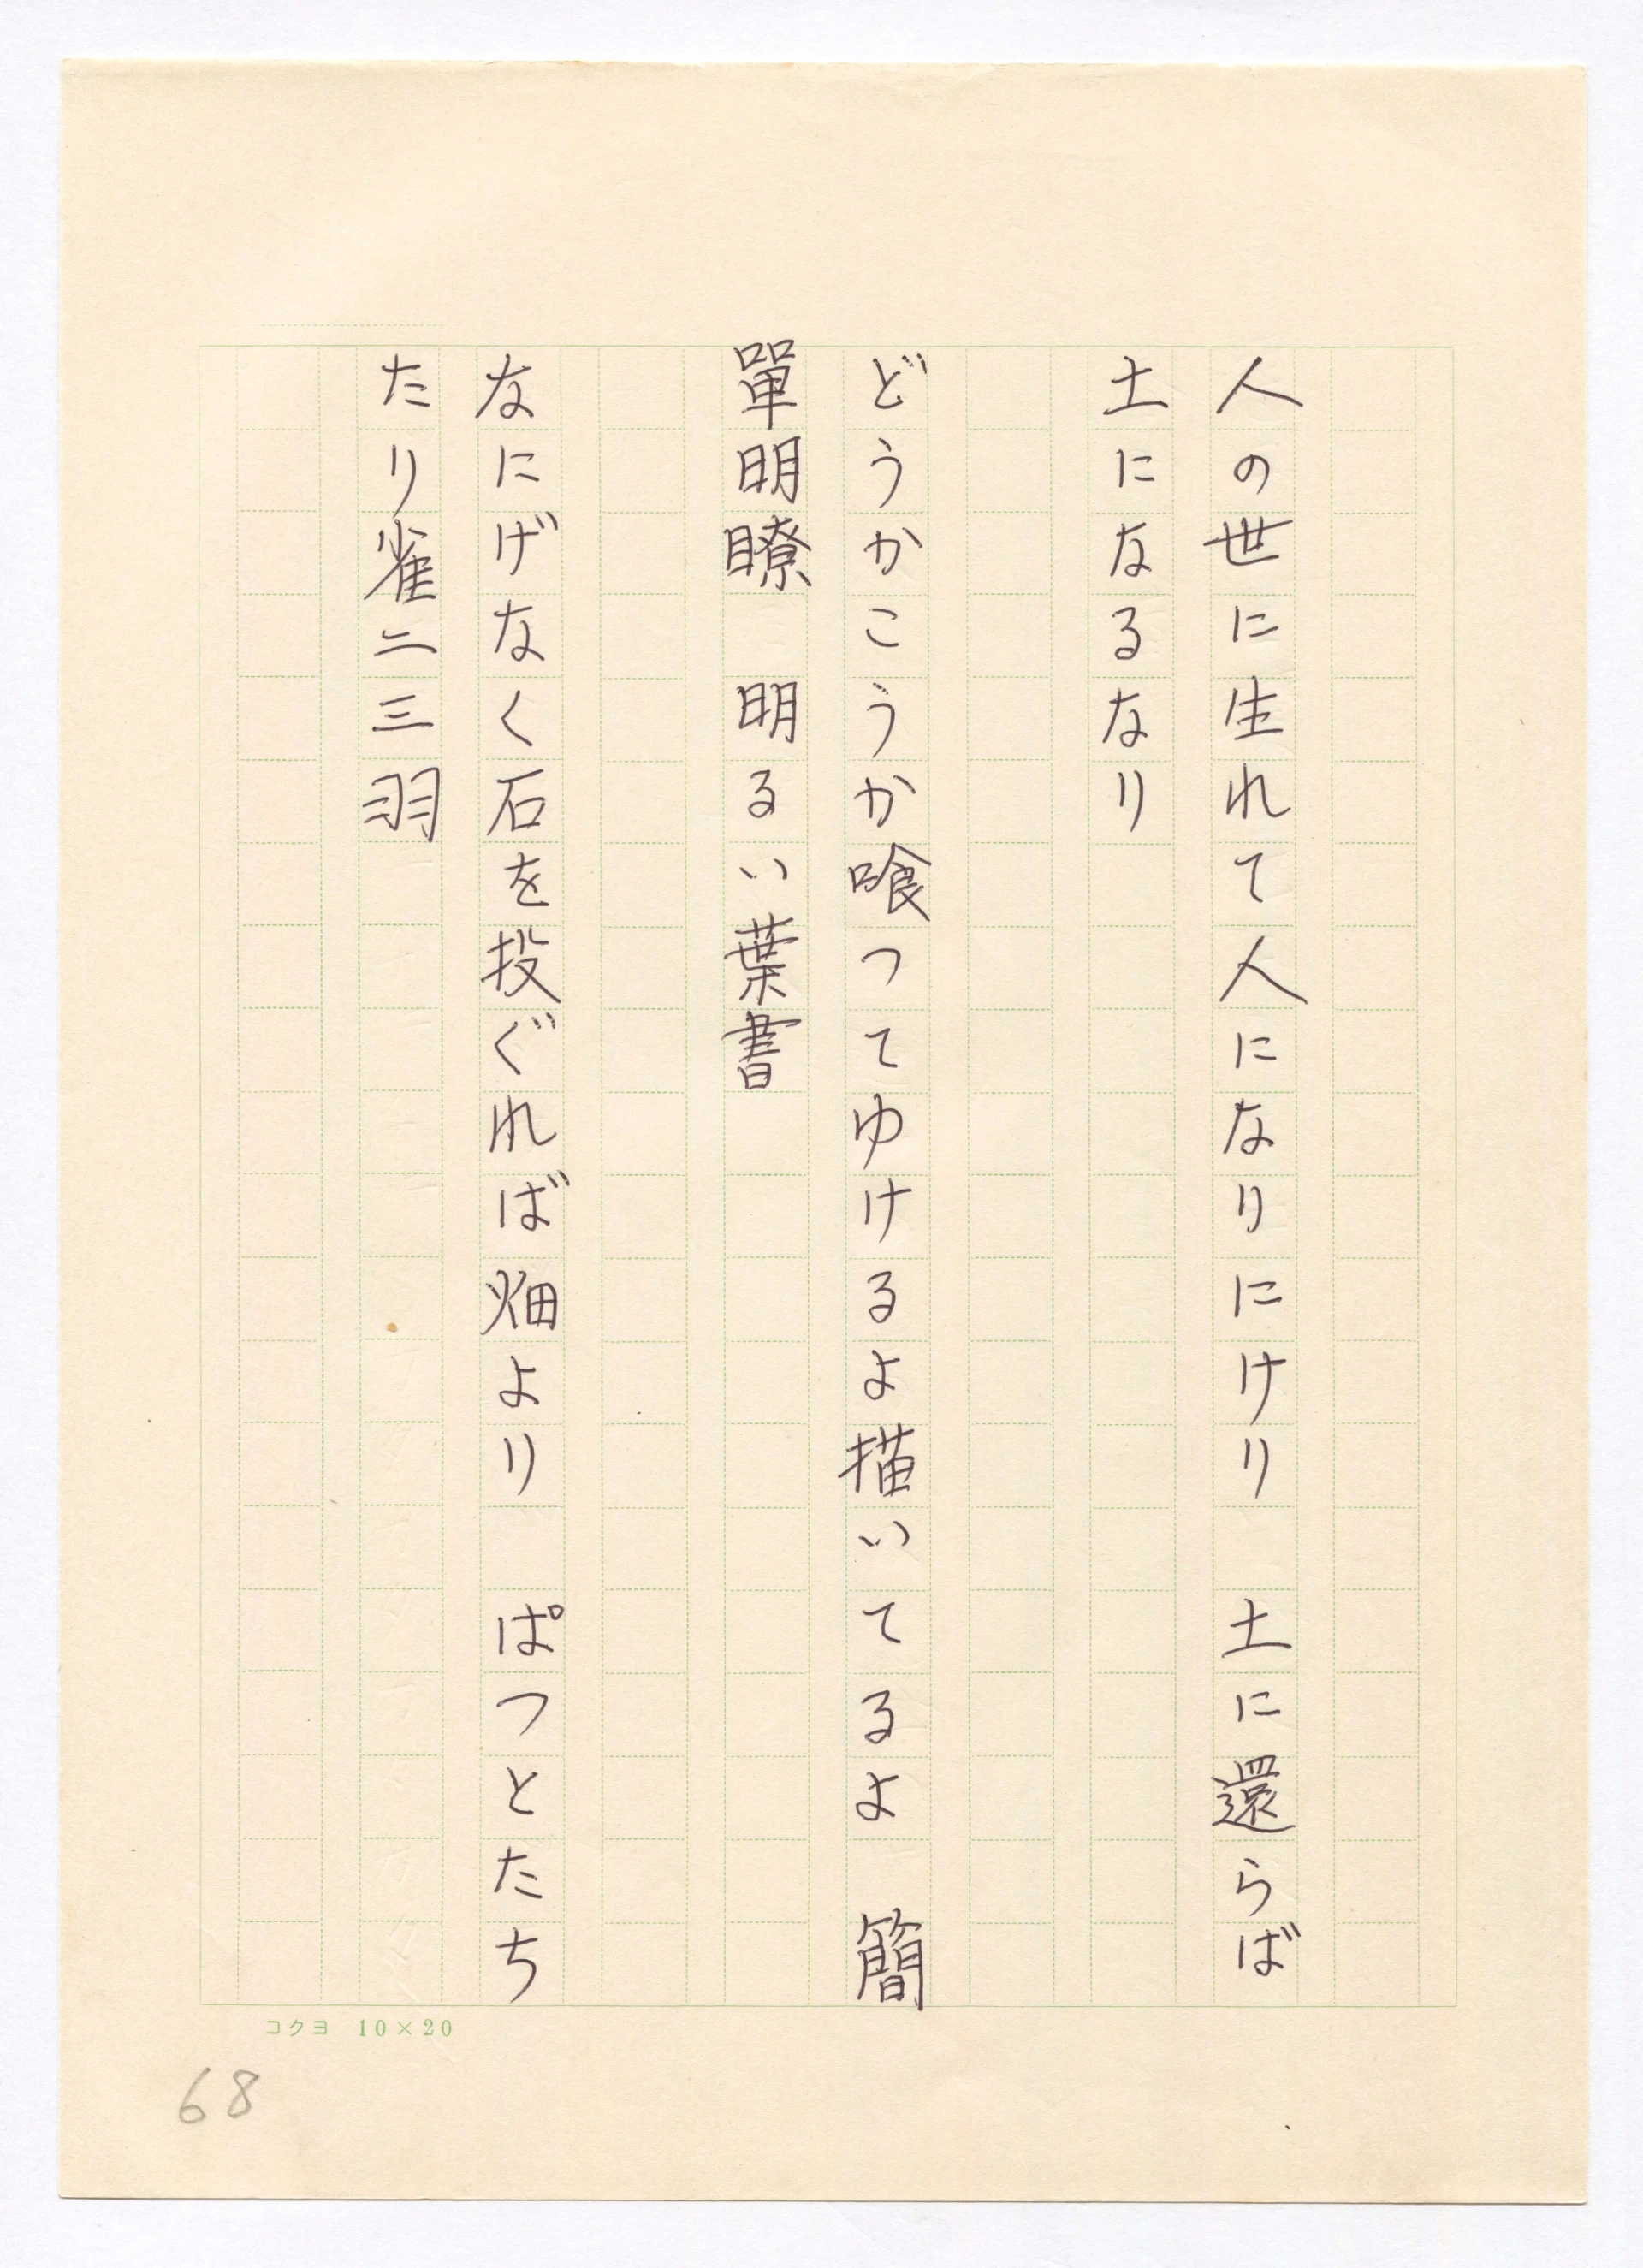 人の世に生れて人になりにけり　土に還らば
土になるなり
どうかこうか喰つてゆけるよ描いてるよ　簡
單明瞭　明るい葉書
なにげなく石を投ぐれば畑より　ぱつとたち
たり雀二三羽
コクヨ 10×20
68